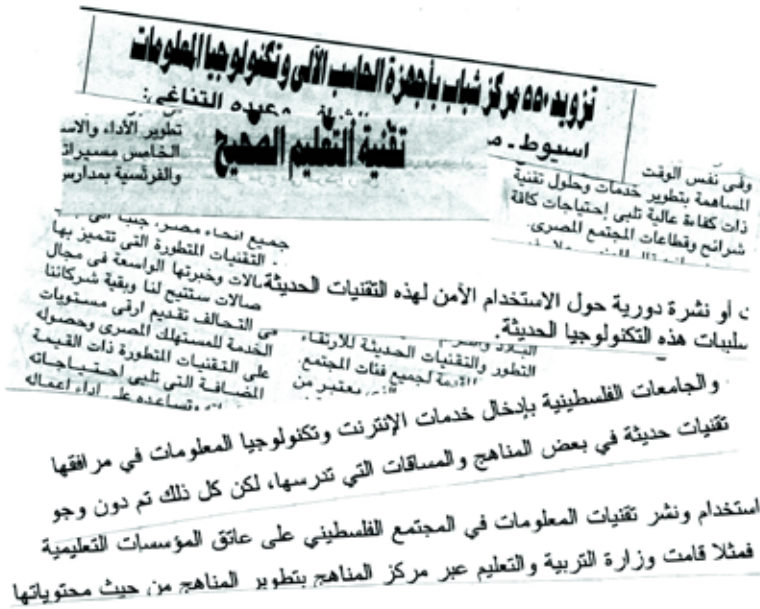 تزويد ٥٥٠ مركز شباب بأجهزة الحاسب الآلى وتكنولوجيا المعلومات
اسيوط ـ
عبده التناغى:
تطوير الأداء
الخامس
والفرنسية بمدارس
تقنية التعليم الصحيح
وفى نفس الوقت
المساهمة بتطوير خدمات وحلول تقنية
ذات كفاءة عالية تلبى إحتياجات كافة
شرائح وقطاعات المجتمع المصرى.
جميع انحاء مصر،
التقنيات المتطورة التى تتميز بها
وخبرتها الواسعة فى مجال
ستتيح لنا وبقية شركائنا
فى التحالف تقديم ارقى مستويات
الخدمة للمستهلك المصرى وحصوله
على التقنيات المتطورة ذات القيمة
المضافة التى تلبى احتياجاته
وتساعده على اداء اعماله
ت أو نشرة دورية حول الاستخدام الآمن لهذه التقنيات الحديثة
سلبيات هذه التكنولوجيا الحديثة.
التطور والتقنيات الحديثة للارتقاء
لجميع فئات المجتمع.
يعتبر من
والجامعات الفلسطينية بإدخال خدمات الإنترنت وتكنولوجيا المعلومات في مرافقها
تقنيات حديثة في بعض المناهج والمساقات التي تدرسها، لكن كل ذلك تم دون وجو
استخدام ونشر تقنيات المعلومات في المجتمع الفلسطيني على عاتق المؤسسات التعليمية
فمثلا قامت وزارة التربية والتعليم عبر مركز المناهج بتطوير المناهج من حيث محتوياتها